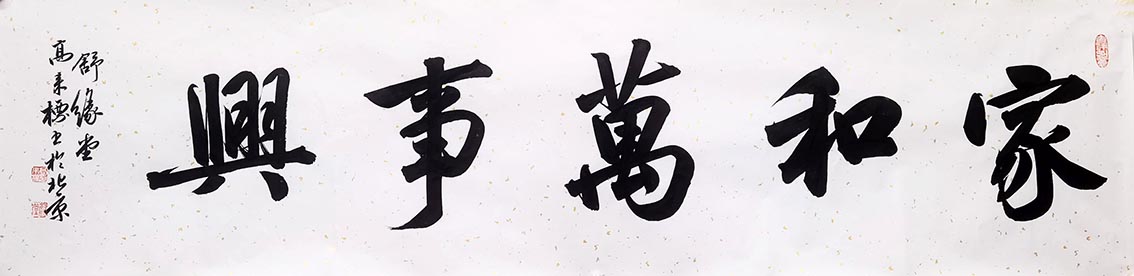 家和萬事興
舒緣堂
高来標书於北京